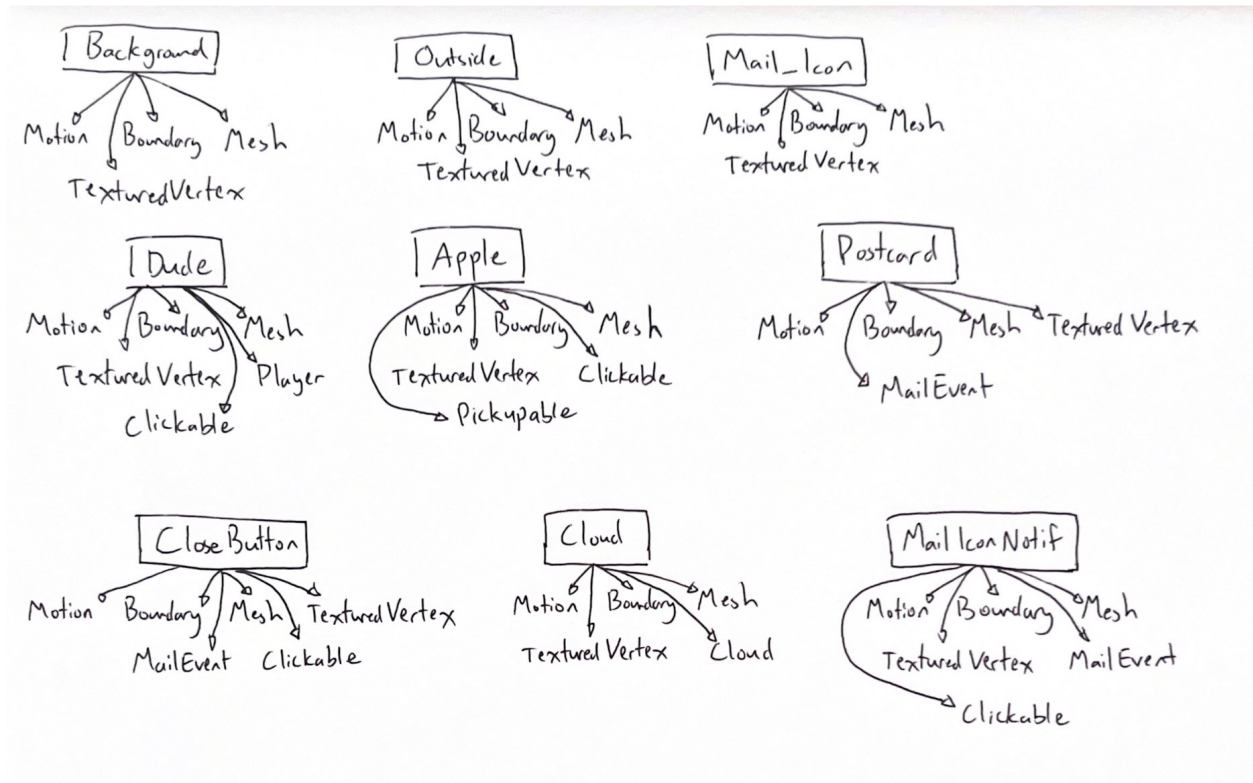 Background
Motion Boundary Mesh
TexturedVertex
Outside
Motion Boundary Mesh
Textured Vertex
Mail_Icon
Motion Boundary Mesh
Textured Vertex
Dude
Motion Boundary Mesh
Textured Vertex Player
Clickable
Apple
Motion Boundary Mesh
Textured Vertex Clickable
Pickupable
Postcard
Motion Boundary Mesh Textured Vertex
MailEvent
Close Button
Motion Boundary Mesh Textured Vertex
MailEvent Clickable
Cloud
Motion Boundary Mesh
Textured Vertex Cloud
Mail Icon Notif
Motion Boundary Mesh
Textured Vertex MailEvent
Clickable